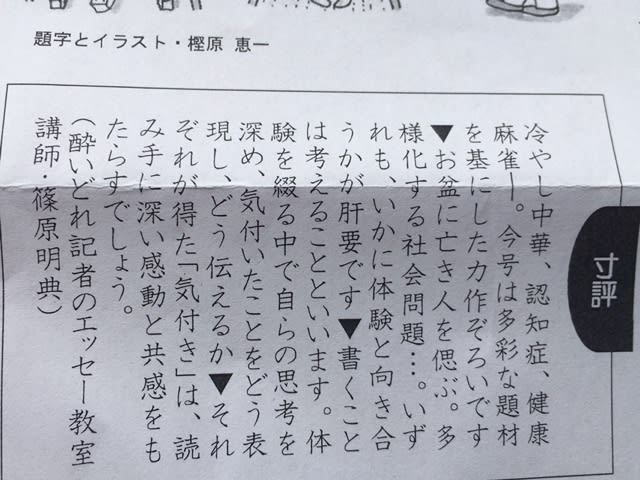 題字とイラスト・樫原 恵一
寸評
冷やし中華、認知症、健康
麻雀ー。今号は多彩な題材
を基にした力作ぞろいです
▼お盆に亡き人を偲ぶ。多
様化する社会問題…。いず
れも、いかに体験と向き合
うかが肝要です▼書くこと
は考えることといいます。体
験を綴る中で自らの思考を
深め、気付いたことをどう表
現し、どう伝えるか▼それ
ぞれが得た「気付き」は、読
み手に深い感動と共感をも
たらすでしょう。
（酔いどれ記者のエッセー教室
講師・篠原明典）